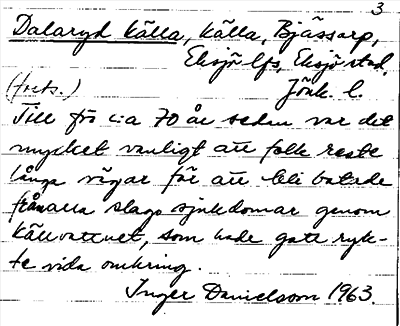 3
Dalaryd källa, källa, Bjässarp,
Eksjö lfs, Eksjö stad,
Jönk. l.
(forts.)
Till för c:a 70 år sedan var det
mycket vanligt att folk reste
långa vägar för att bli botade
från alla slags sjukdomar genom
källvattnet, som hade gott ryk-
te vida omkring.
Inger Danielsson 1963.